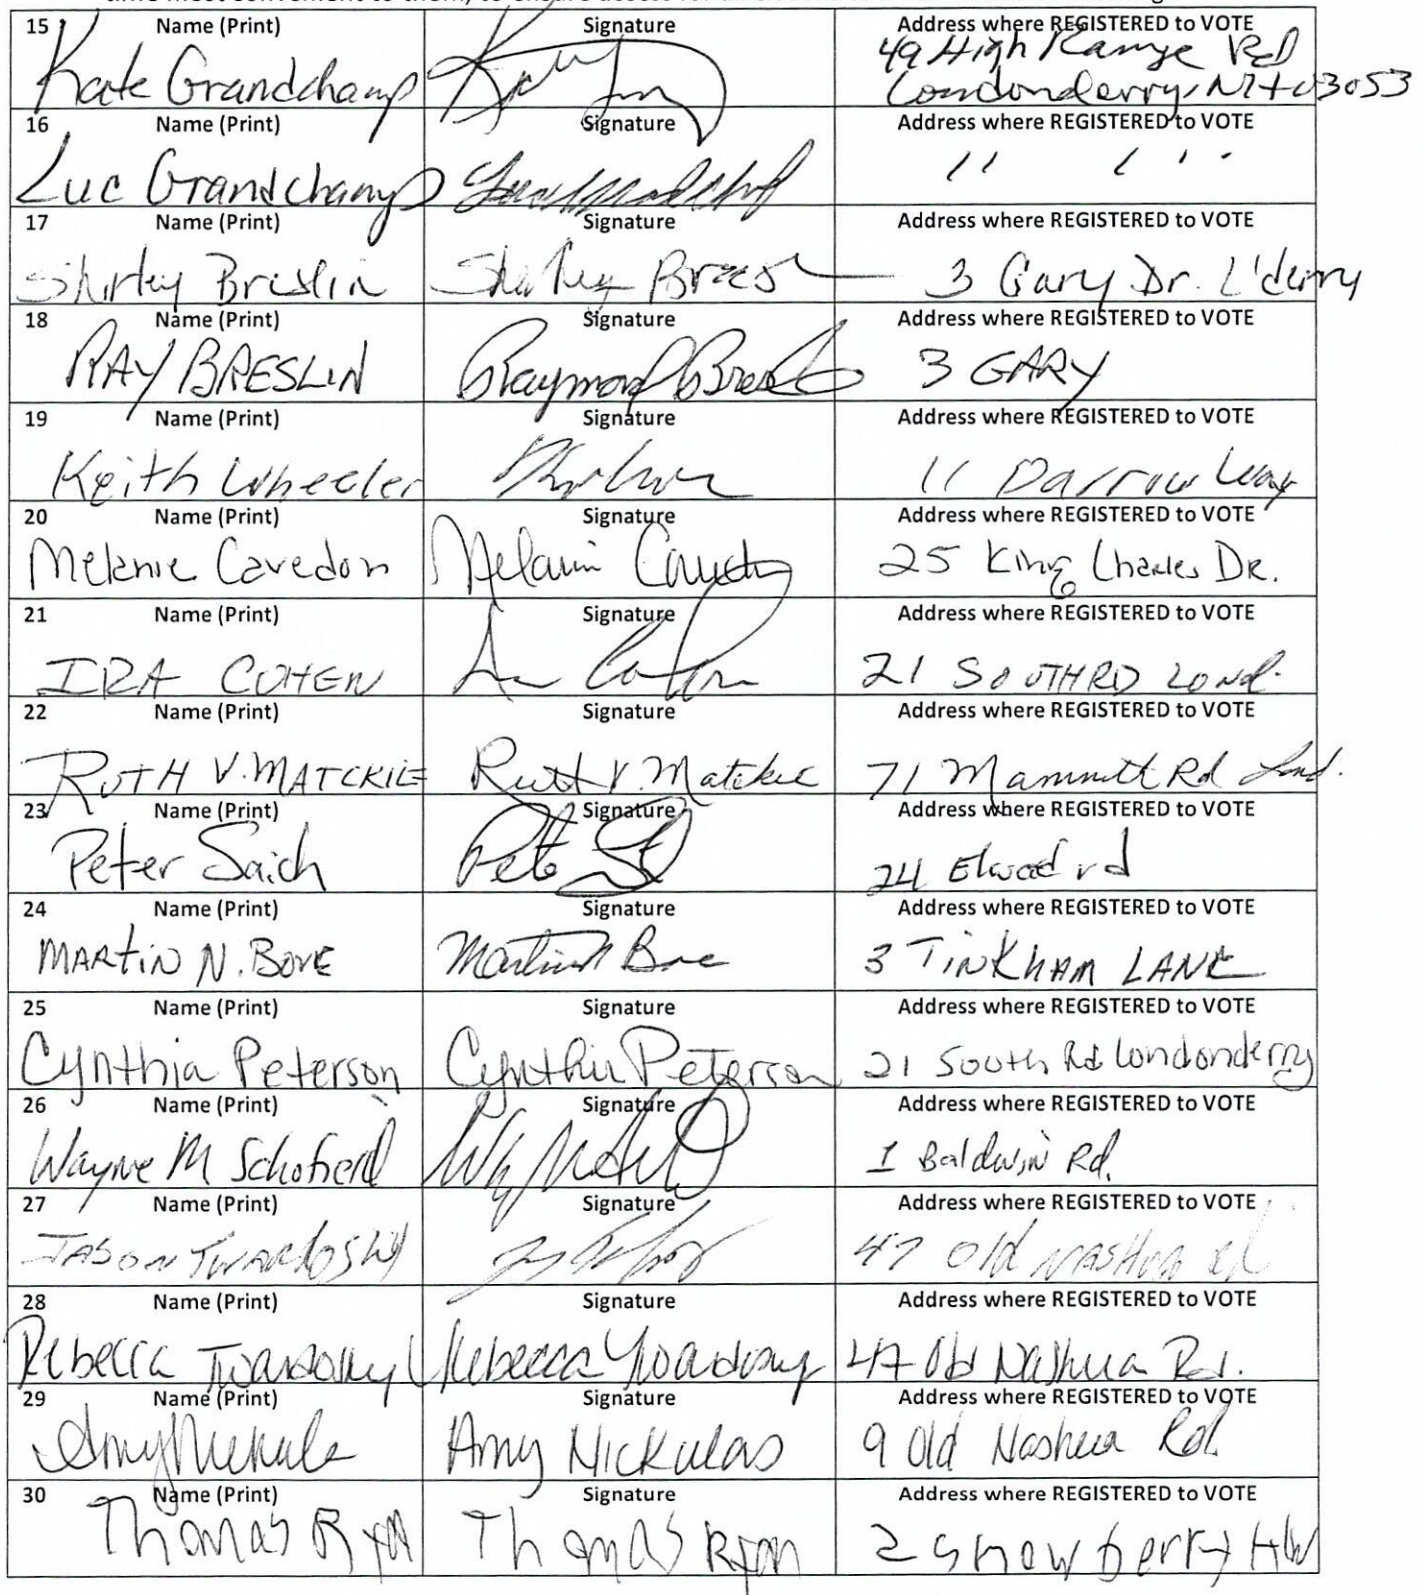 15 Name (Print) Signature Address where REGISTERED to VOTE
Kate Grandchamp 49 High Range Rd
Londonderry, NH 03053
16 Name (Print) Signature Address where REGISTERED to VOTE
Luc Grandchamp 11 11
17 Name (Print) Signature Address where REGISTERED to VOTE
Shirley Brislin Shirley 3 Gary Dr. L'derry
18 Name (Print) Signature Address where REGISTERED to VOTE
RAY BRESLIN Raymond 3 GARY
19 Name (Print) Signature Address where REGISTERED to VOTE
Keith Wheeler 11 Darrow Way
20 Name (Print) Signature Address where REGISTERED to VOTE
Melanie Cavedon Melanie 25 King Charles DR.
21 Name (Print) Signature Address where REGISTERED to VOTE
IRA COHEN 21 SOUTH RD LOND.
22 Name (Print) Signature Address where REGISTERED to VOTE
RUTH V. MATCKIE Ruth V. Matckie 71 Mammoth Rd Lond.
23 Name (Print) Signature Address where REGISTERED to VOTE
Peter Saich Pete 24 Elwood rd
24 Name (Print) Signature Address where REGISTERED to VOTE
MARTIN N. BOVE Martin N Bove 3 TINKHAM LANE
25 Name (Print) Signature Address where REGISTERED to VOTE
Cynthia Peterson Cynthia Peterson 21 South Rd Londonderry
26 Name (Print) Signature Address where REGISTERED to VOTE
Wayne M Schofield 1 Baldwin Rd.
27 Name (Print) Signature Address where REGISTERED to VOTE
JASON TWARDOSKY 47 Old NASHUA rd
28 Name (Print) Signature Address where REGISTERED to VOTE
Rebecca Twardosky Rebecca Twardosky 47 Old Nashua Rd.
29 Name (Print) Signature Address where REGISTERED to VOTE
Amy Amy Nickulas 9 Old Nashua Rd.
30 Name (Print) Signature Address where REGISTERED to VOTE
Thomas Ryan Thomas Ryan 2 Snowberry HW